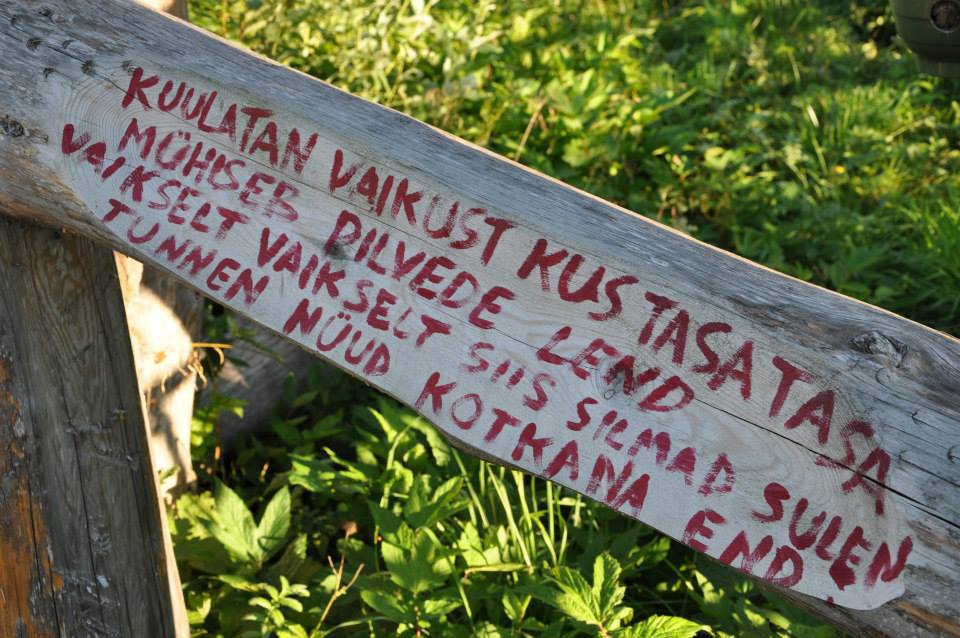 KUULATAN VAIKUST KUS TASA TASA
MÜHISEB PILVEDE LEND
VAIKSELT VAIKSELT SIIS SILMAD SULEN
TUNNEN NÜÜD KOTKANA END.